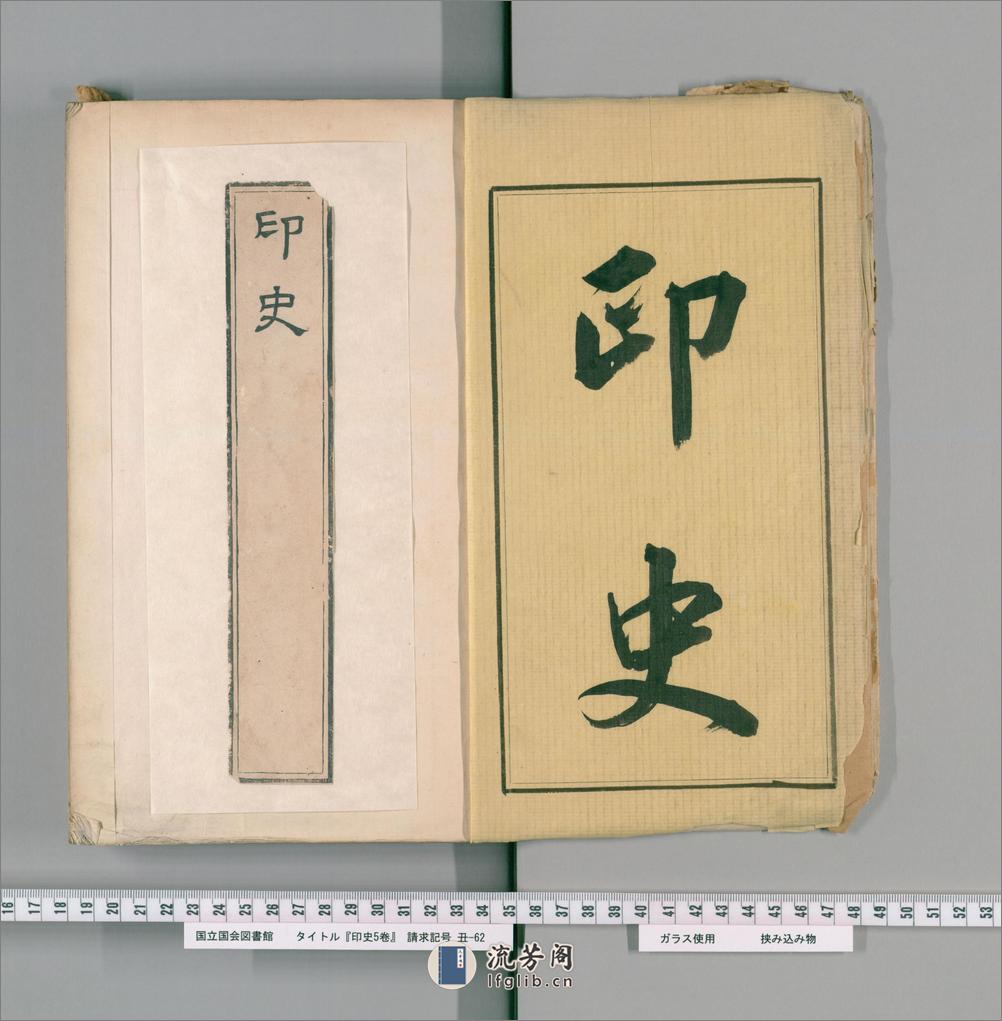 印史
印史
16 17 18 19 20 21 22 23 24 25 26 27 28 29 30 31 32 33 34 35 36 37 38 39 40 41 42 43 44 45 46 47 48 49 50 51 52 53
国立国会図書館 タイトル『印史5巻』 請求記号 丑-62
ガラス使用 挟み込み物
流芳阁
lfglib.cn